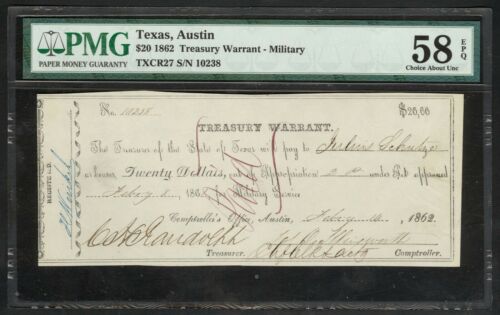 PMG
PAPER MONEY GUARANTY
Texas, Austin
$20 1862 Treasury Warrant - Military
TXCR27 S/N 10238
58 EPQ
Choice About Unc
No. 10238
$20,00
TREASURY WARRANT.
The Treasurer of the State of Texas will pay to Julius
or bearer, Twenty Dollars, out of Appropriation under Act approved
186 for Military Service.
Comptroller's Office, Austin, 1862
REGISTERED.
C. H. Randolph
Treasurer. Comptroller.